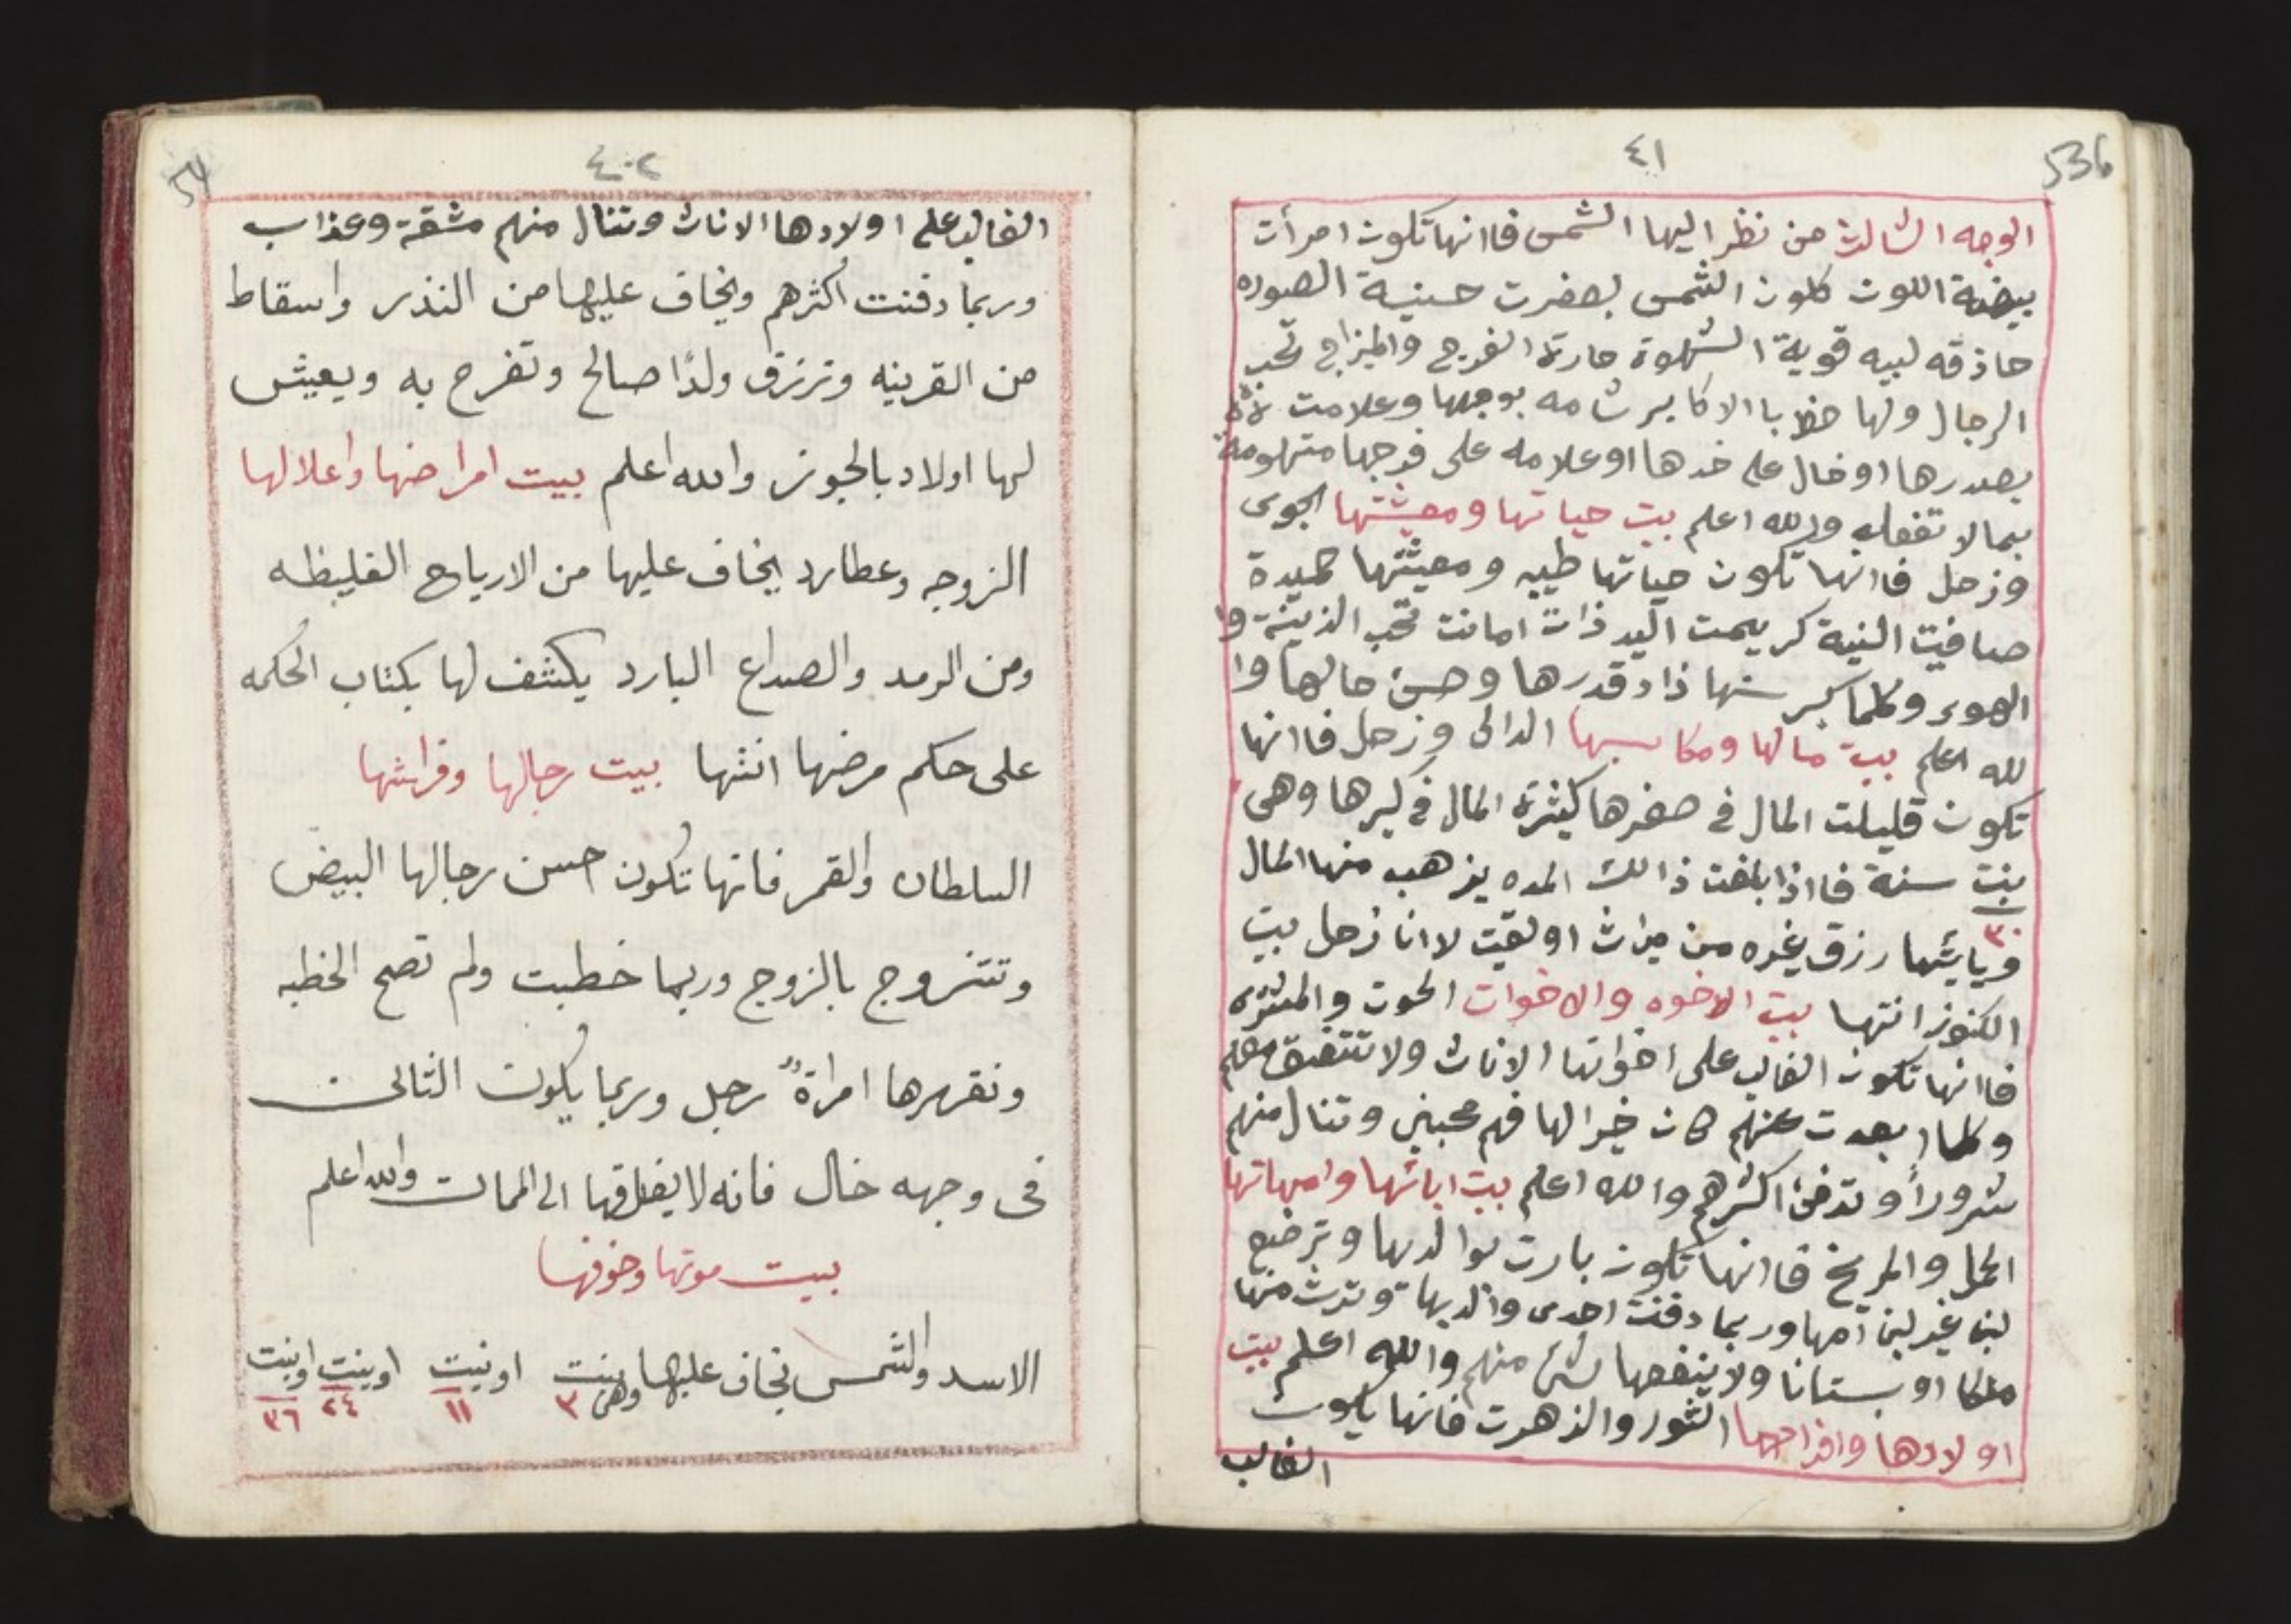 ٤١
536
الوجه الثالث من نظر اليها الشمس فاانها تكون امرأت
بيضة اللون كلون الشمس بصفرت حسنية الصوره
حاذقه لبيه قوية الشهوة حارة الفرج والمزاج تحب
الرجال ولها حظ باالاكابر شامه بوجهها وعلامت
بصدرها او خال على خدها او علامه على فرجها متهومة
بمالا تفعله والله اعلم بيت حياتها ومعيشتها الجوى
وزحل فاانها تكون حياتها طيبه ومعيشتها حميدة
صافيت النية كريمت اليد ذات امانت تحب الذينة وا
الهوى وكلما كبر سنها ذاد قدرها وحسن حالها وا
لله اعلم بيت مالها ومكاسبها الدالى وزحل فاانها
تكون قليلت المال في صغرها كثيرة المال في كبرها وهى
بنت سنة فااذا بلغت ذالك المده يذهب منها المال
٣٠
وياتيها رزق غيره من ميراث او لقيت لاانا زحل بيت
الكنوز انتها بيت الاخوه والاخوات الحوت والمشترى
فاانها تكون الغالب على اخواتها الاناث ولا تتفق معهم
وكلما بعدت عنهم كان خيرا لها فهم محبين وتنال منهم
شرورًا وتدفن اكثرهم والله اعلم بيت ابائها وامهاتها
الحمل والمريخ فاانها تكون بارت بوالديها وترضع
لبن غير لبن امها وربما دفنت احدى والديها وترث منها
ملكا او بستانا ولا ينفعها بشئ منهم والله اعلم بيت
اولادها وافراحها الثور والذهرت فانها يكون
الغالب
٤٠٢
54
الغالب على اولادها الاناث وتنال منهم مشقة وعذاب
وربما دفنت اكثرهم ويخاف عليها من النذر واسقاط
من القرينه وترزق ولدًا صالح وتفرح به ويعيش
لها اولاد بالجوز والله اعلم بيت امراضها واعلالها
الزوجه وعطارد يخاف عليها من الارياح الغليظه
ومن الرمد والصداع البارد يكشف لها بكتاب الحكمه
على حكم مرضها انتها بيت رجالها وفراشها
السلطان والقمر فانها تكون احسن رجالها البيض
وتتزوج بالزوج وربما خطبت ولم تصح الخطبه
ونقهرها امراة رجل وربما يكون الثالى
فى وجهه خال فانه لا يفارقها الى الممات والله اعلم
بيت موتها وخوفها
الاسد والشمس تخاف عليها وهى بنت او بنت او بنت او بنت
٣ ١١ ٢٤ ٣٦